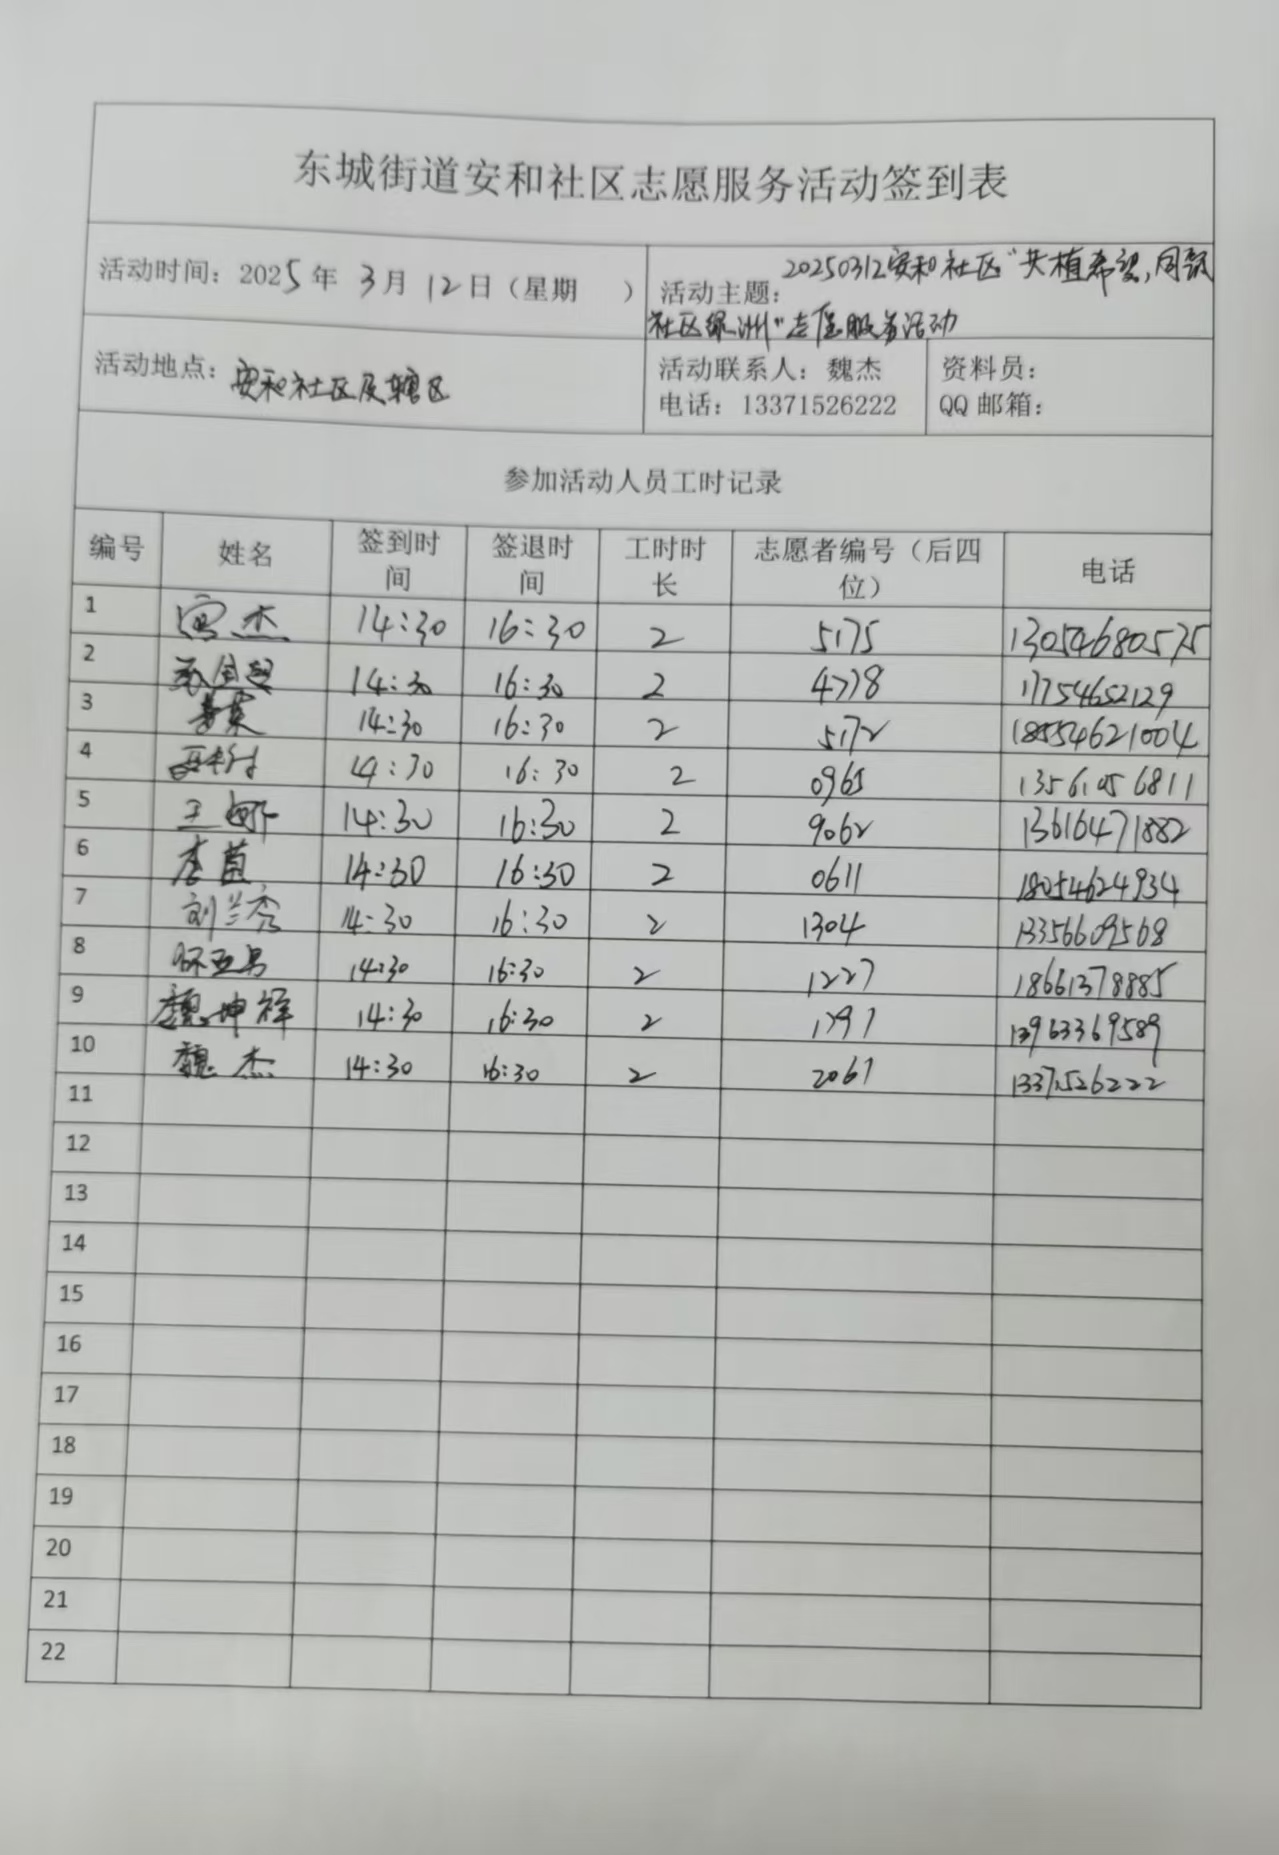 东城街道安和社区志愿服务活动签到表
活动时间：2025年 3月 12日（星期 ）
活动主题：20250312安和社区“共植希望,同
社区绿洲”志愿服务活动
活动地点：安和社区及辖区
活动联系人：魏杰
电话：13371526222
资料员：
QQ邮箱：
参加活动人员工时记录
编号 姓名 签到时间 签退时间 工时时长 志愿者编号（后四位） 电话
1 杰 14:30 16:30 2 5175 13054680575
2 14:30 16:30 2 4778 17754652129
3 14:30 16:30 2 5172 18554621004
4 14:30 16:30 2 0965 13561056811
5 王娜 14:30 16:30 2 9062 13616471882
6 李苗 14:30 16:30 2 0611 18054624934
7 刘兰秀 14:30 16:30 2 1304 13356609568
8 14:30 16:30 2 1227 18661378885
9 魏坤祥 14:30 16:30 2 1797 13963369589
10 魏杰 14:30 16:30 2 2067 13371526222
11
12
13
14
15
16
17
18
19
20
21
22